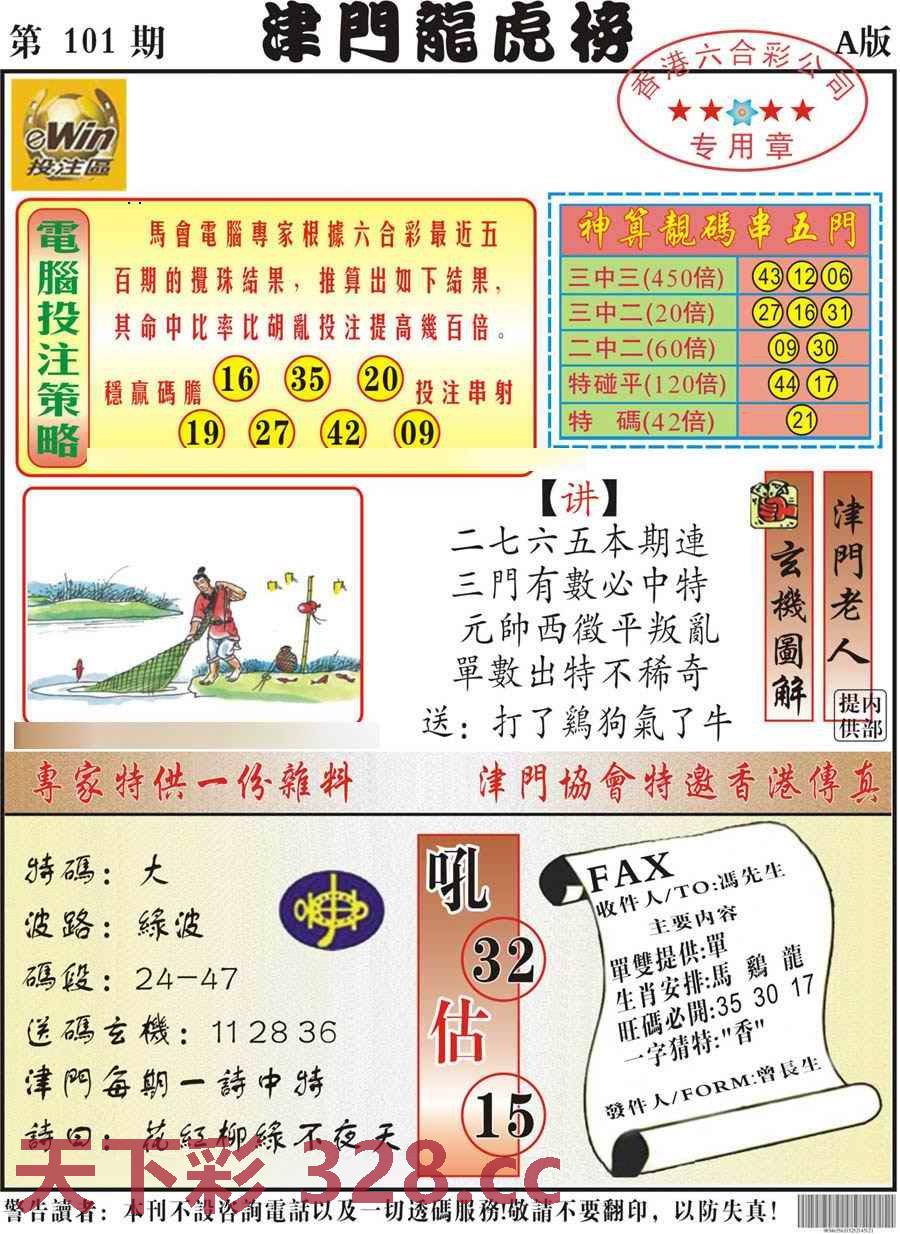 第 101 期
津門龍虎榜
A版
香港六合彩公司
专用章
eWin
投注區
電腦投注策略
馬會電腦專家根據六合彩最近五
百期的攪珠結果，推算出如下結果，
其命中比率比胡亂投注提高幾百倍。
穩贏碼膽 16 35 20 投注串射
19 27 42 09
神算靚碼串五門
三中三(450倍) 43 12 06
三中二(20倍) 27 16 31
二中二(60倍) 09 30
特碰平(120倍) 44 17
特 碼(42倍) 21
【讲】
二七六五本期連
三門有數必中特
元帥西徵平叛亂
單數出特不稀奇
送：打了鷄狗氣了牛
玄機圖解
津門老人
内部提供
專家特供一份雜料
津門協會特邀香港傳真
特碼：大
波路：綠波
碼段：24—47
送碼玄機：11 28 36
津門每期一詩中特
詩曰：花紅柳綠不夜天
吼
32
估
15
FAX
收件人/TO:馮先生
主要内容
單雙提供:單
生肖安排:馬 鷄 龍
旺碼必開:35 30 17
一字猜特:"香"
發件人/FORM:曾長生
天下彩 328.cc
警告讀者：本刊不設咨詢電話以及一切透碼服務!敬請不要翻印，以防失真!